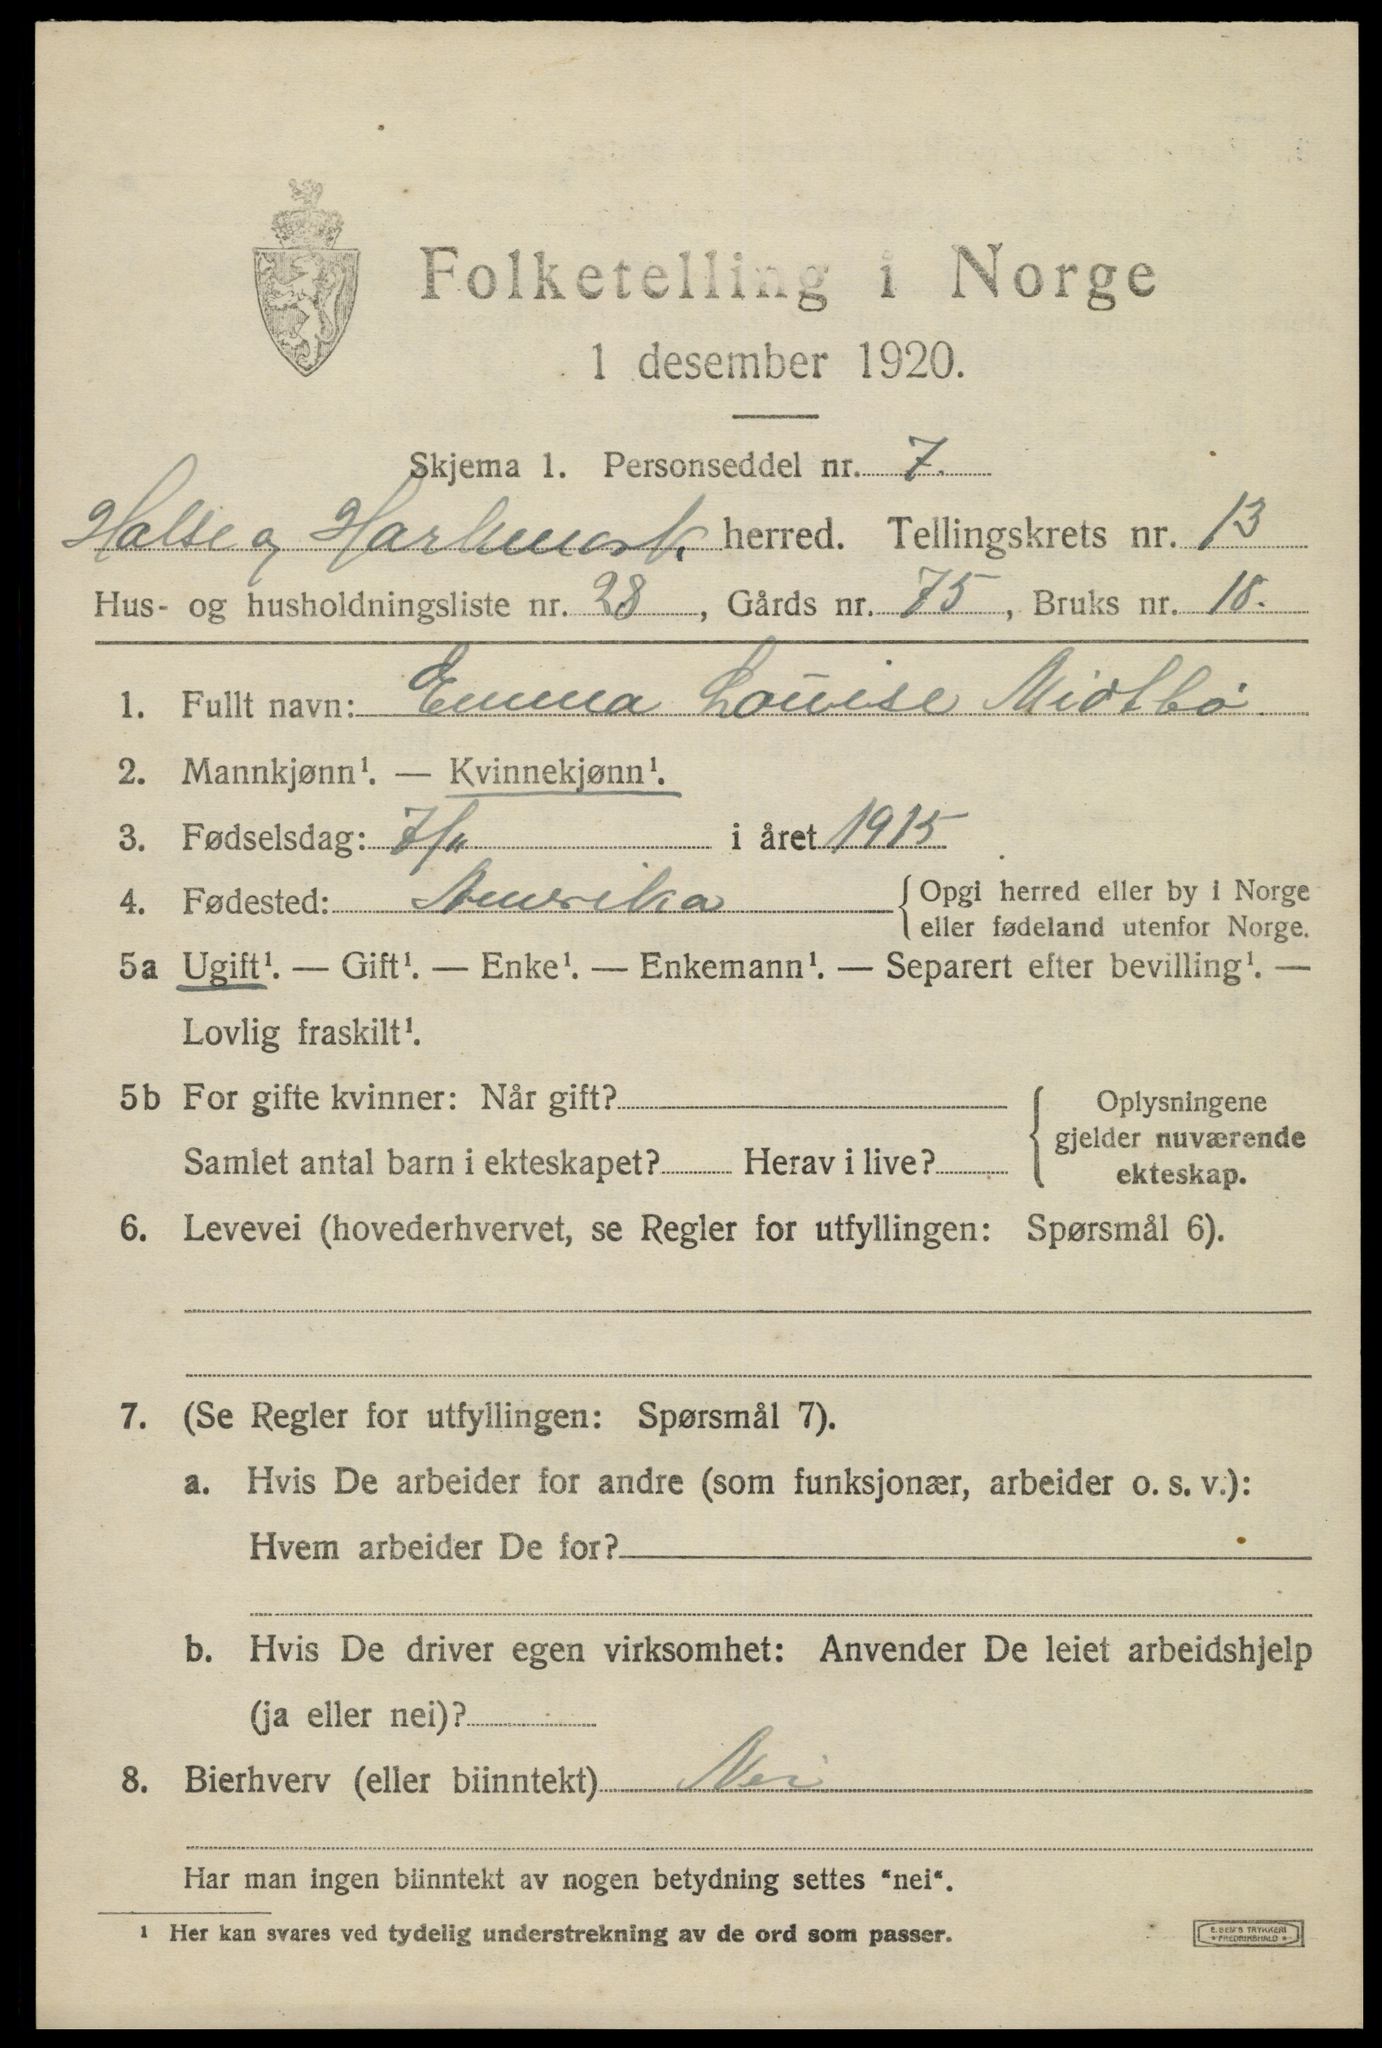 Folketelling i Norge
1 desember 1920.
Skjema 1. Personseddel nr. 7.
Halse og Harkmark. herred. Tellingskrets nr. 13
Hus- og husholdningsliste nr. 28, Gårds nr. 75, Bruks nr. 18.
1. Fullt navn: Emma Louise Midtbø.
2. Mannkjønn¹. — Kvinnekjønn¹.
3. Fødselsdag: 7/11 i året 1915
4. Fødested: Amerika { Opgi herred eller by i Norge
eller fødeland utenfor Norge.
5a Ugift¹. — Gift¹. — Enke¹. — Enkemann¹. — Separert efter bevilling¹. —
Lovlig fraskilt¹.
5b For gifte kvinner: Når gift? { Oplysningene
gjelder nuværende
Samlet antal barn i ekteskapet? Herav i live? ekteskap.
6. Levevei (hovederhvervet, se Regler for utfyllingen: Spørsmål 6).
7. (Se Regler for utfyllingen: Spørsmål 7).
a. Hvis De arbeider for andre (som funksjonær, arbeider o. s. v.):
Hvem arbeider De for?
b. Hvis De driver egen virksomhet: Anvender De leiet arbeidshjelp
(ja eller nei)?
8. Bierhverv (eller biinntekt) Nei
Har man ingen biinntekt av nogen betydning settes "nei".
¹ Her kan svares ved tydelig understrekning av de ord som passer.
E. SEM'S TRYKKERI
* FREDRIKSHALD *